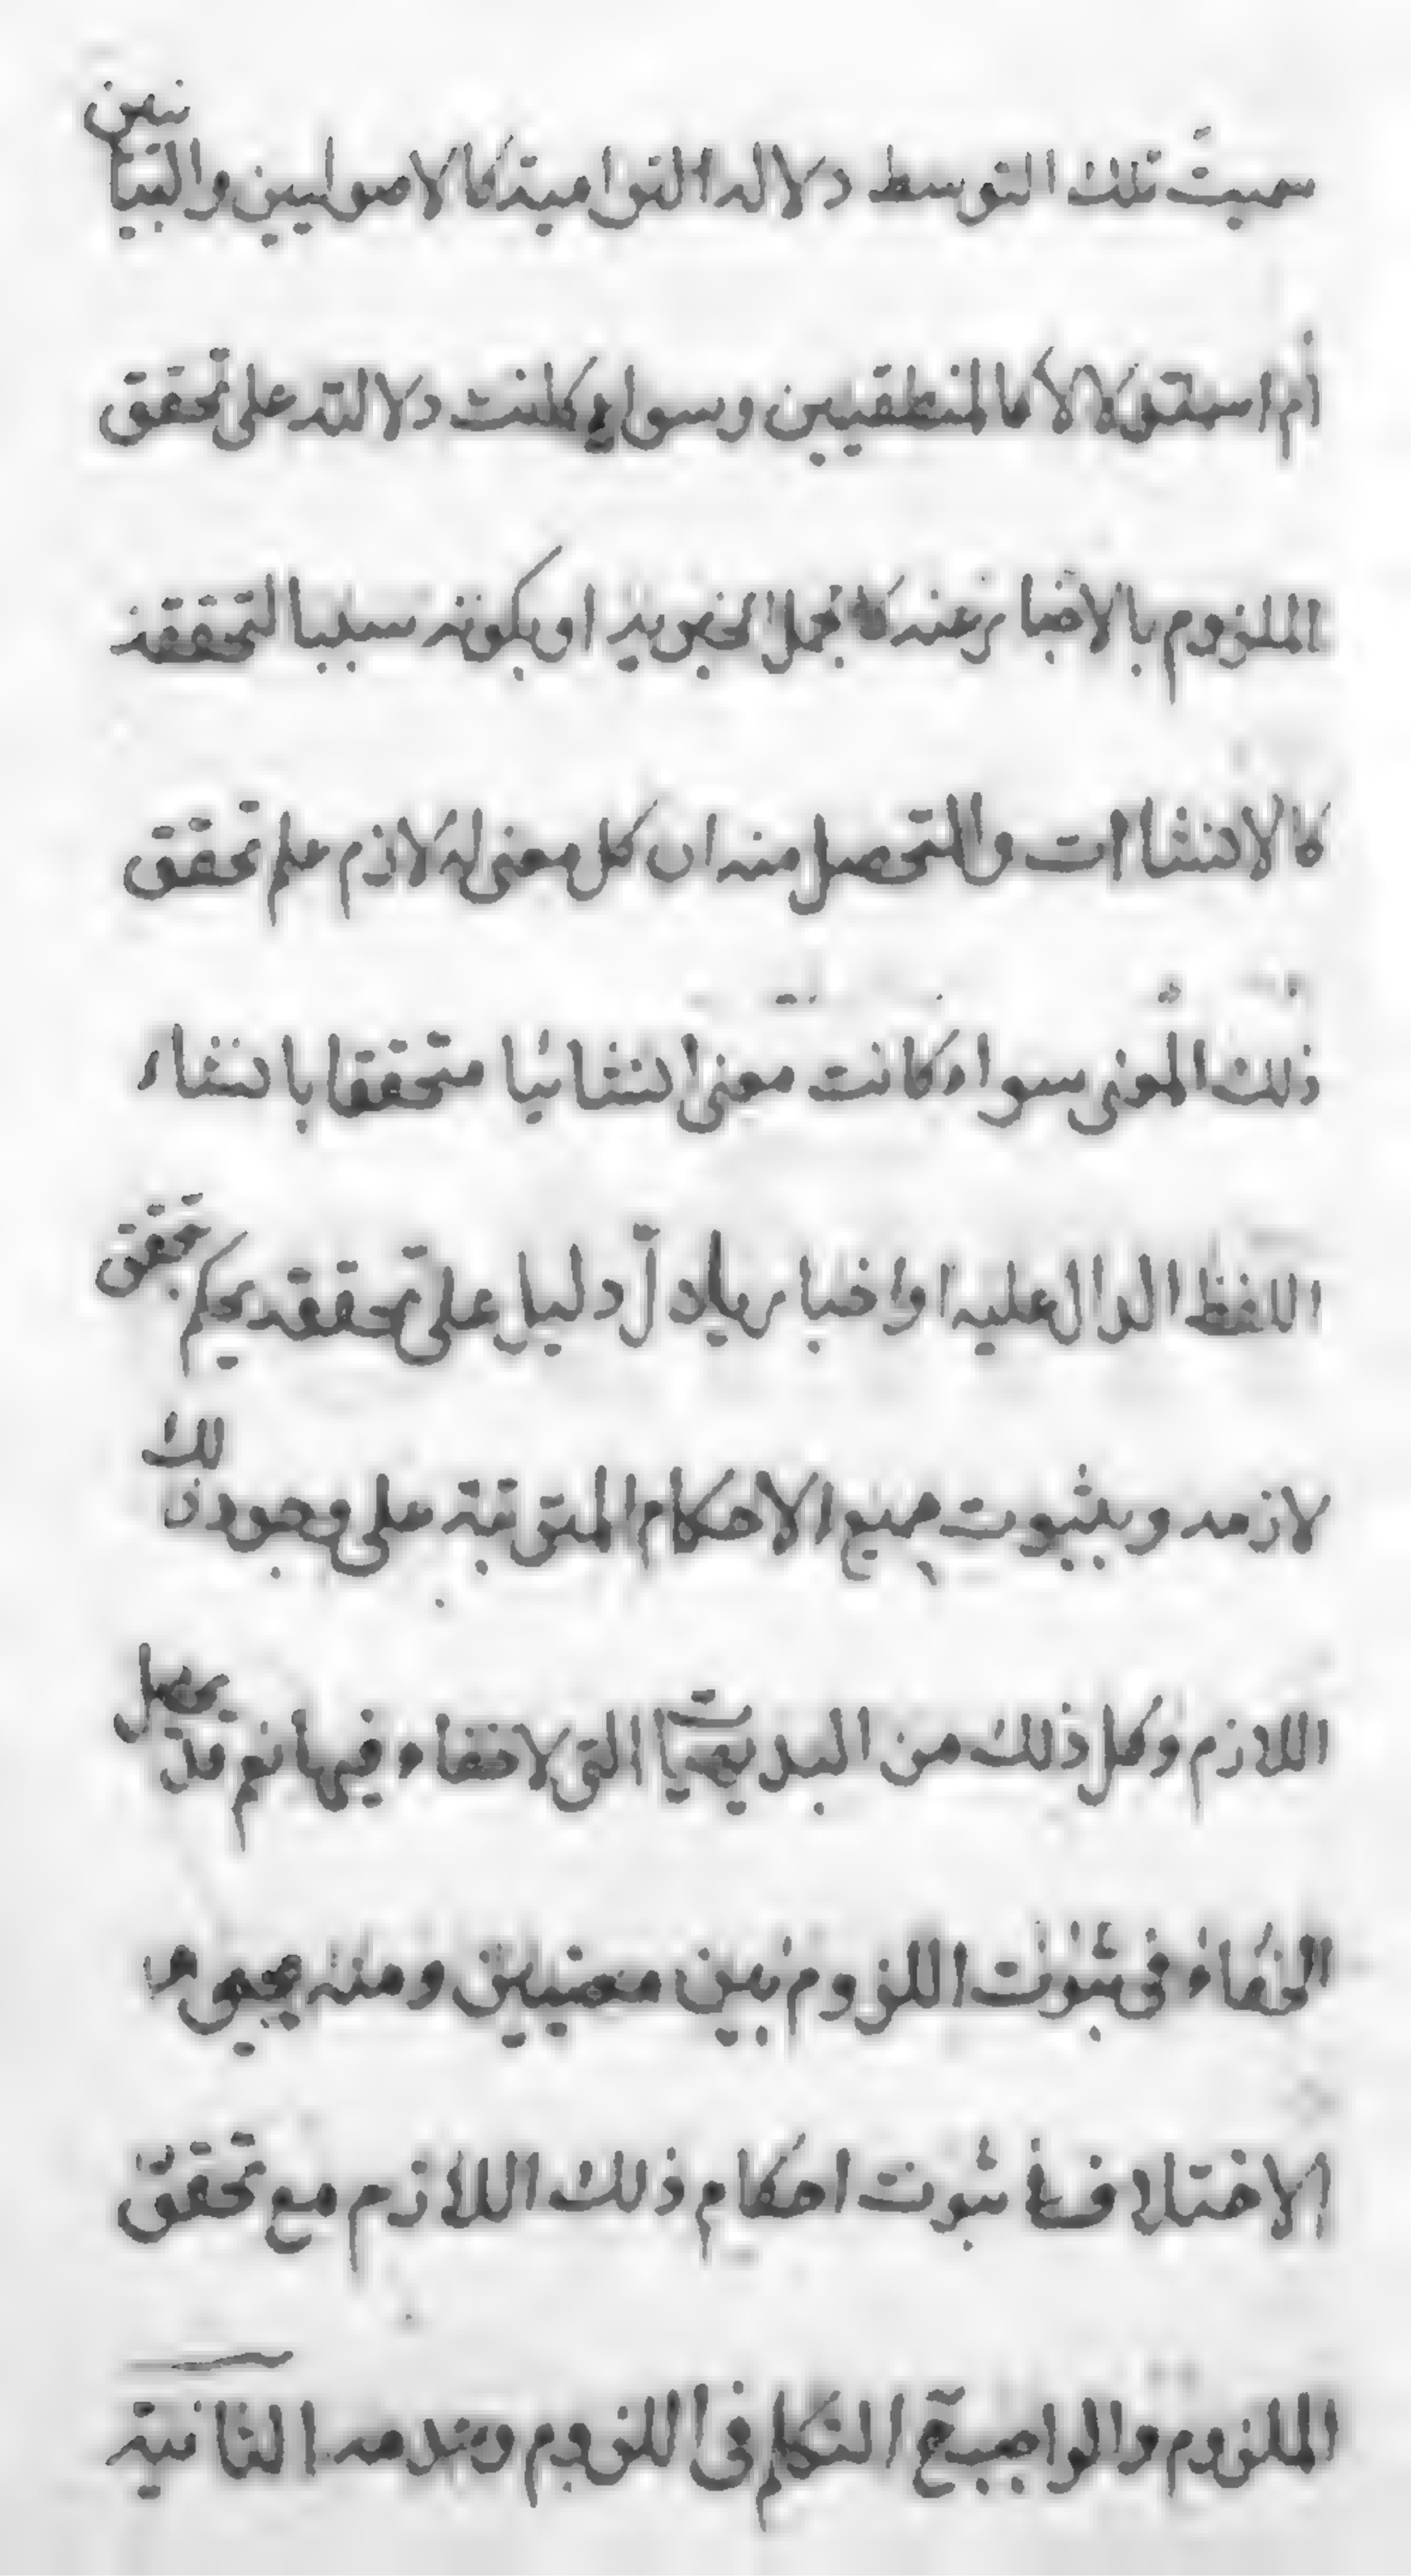 سميت تلك التوسط دلاله التزامية كالاصوليين والبيانيين
أم اسمتق لا لا كالمنطقيين وسواء كانت دلالته على تحقق
الملزوم بالاخبار عنه كالجمل الخبرية او بكونه سببا لتحققه
كالانشاات والمتحصل منه ان كل معنى له لازم علم تحقق
ذلك المعنى سواء كانت معنى انشائيا متحققا بانشاء
اللفظ الدال عليه او اخباريا دلّ دليل على تحققه يحكم بتحقق
لازمه وبثبوت جميع الاحكام المترتبة على وجود ذلك
اللازم وكل ذلك من البديهيات التى لا خفاء فيها نعم قد يحصل
الخفاء فى ثبوت اللزوم بين معنيين ومنه يجيى
الاختلاف فى ثبوت احكام ذلك اللازم مع تحقق
الملزوم والواجب ح التكلم فى اللزوم وعدمه الثانية